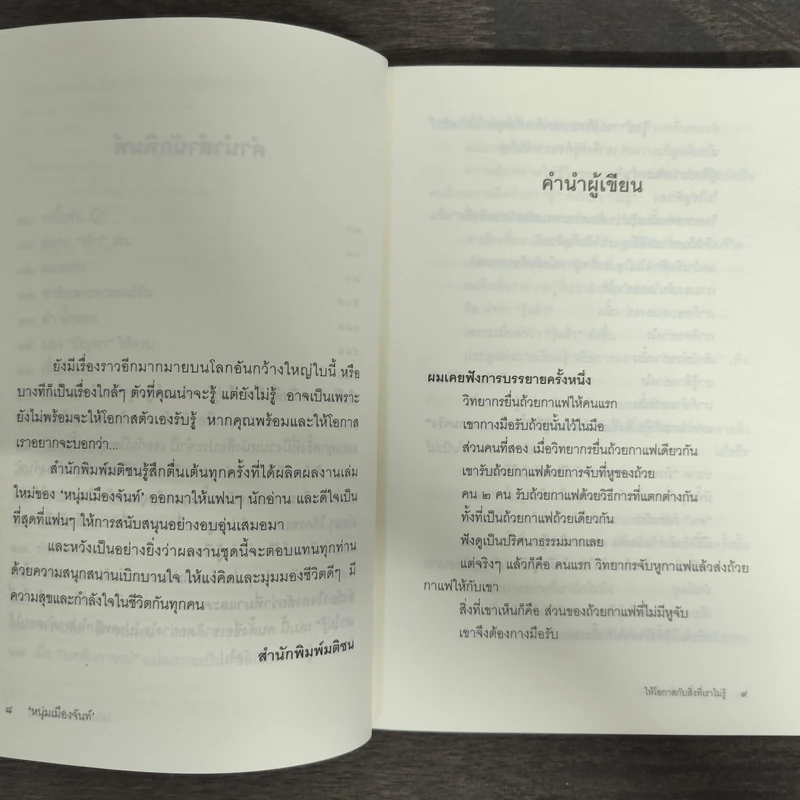 ยังมีเรื่องราวอีกมากมายบนโลกอันกว้างใหญ่ใบนี้ หรือ
บางทีก็เป็นเรื่องใกล้ๆ ตัวที่คุณน่าจะรู้ แต่ยังไม่รู้ อาจเป็นเพราะ
ยังไม่พร้อมจะให้โอกาสตัวเองรับรู้ หากคุณพร้อมและให้โอกาส
เราอยากจะบอกว่า...
สำนักพิมพ์มติชนรู้สึกตื่นเต้นทุกครั้งที่ได้ผลิตผลงานเล่ม
ใหม่ของ 'หนุ่มเมืองจันท์' ออกมาให้แฟนๆ นักอ่าน และดีใจเป็น
ที่สุดที่แฟนๆ ให้การสนับสนุนอย่างอบอุ่นเสมอมา
และหวังเป็นอย่างยิ่งว่าผลงานชุดนี้จะตอบแทนทุกท่าน
ด้วยความสนุกสนานเบิกบานใจ ให้แง่คิดและมุมมองชีวิตดีๆ มี
ความสุขและกำลังใจในชีวิตกันทุกคน
สำนักพิมพ์มติชน
๘ 'หนุ่มเมืองจันท์'
คำนำผู้เขียน
ผมเคยฟังการบรรยายครั้งหนึ่ง
วิทยากรยื่นถ้วยกาแฟให้คนแรก
เขากางมือรับถ้วยนั้นไว้ในมือ
ส่วนคนที่สอง เมื่อวิทยากรยื่นถ้วยกาแฟเดียวกัน
เขารับถ้วยกาแฟด้วยการจับที่หูของถ้วย
คน ๒ คน รับถ้วยกาแฟด้วยวิธีการที่แตกต่างกัน
ทั้งที่เป็นถ้วยกาแฟถ้วยเดียวกัน
ฟังดูเป็นปริศนาธรรมมากเลย
แต่จริงๆ แล้วก็คือ คนแรก วิทยากรจับหูกาแฟแล้วส่งถ้วย
กาแฟให้กับเขา
สิ่งที่เขาเห็นก็คือ ส่วนของถ้วยกาแฟที่ไม่มีหูจับ
เขาจึงต้องกางมือรับ
ให้โอกาสกับสิ่งที่เราไม่รู้ ๙